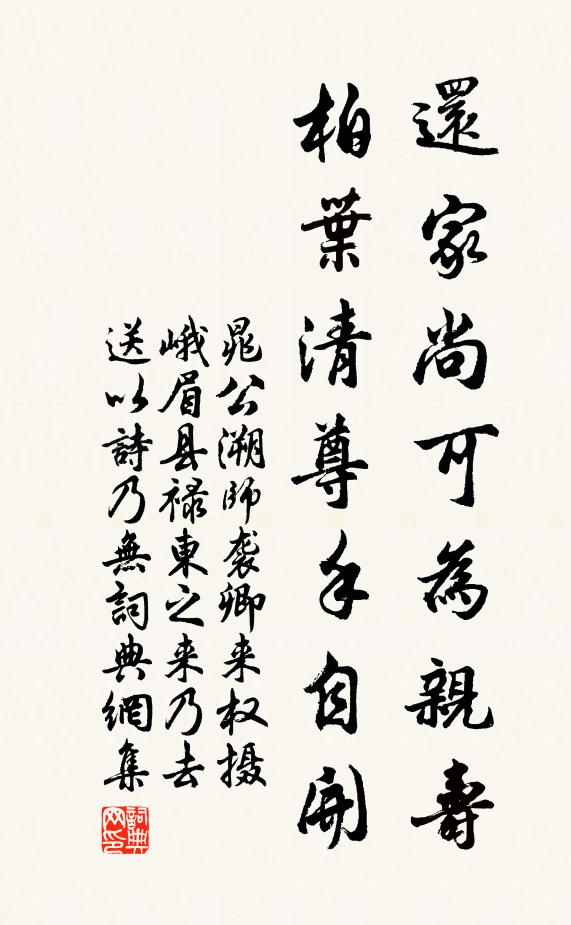 還家尚可為親壽
柏葉清尊手自開
晁公溯師袭卿来权摄
峨眉县禄東之来乃去
送以詩乃無詞典網集
詞典网印